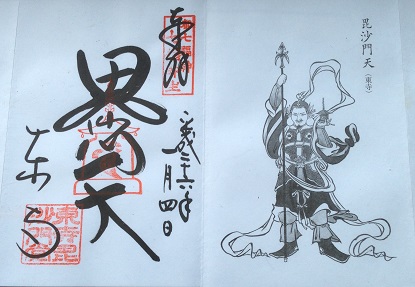 毘沙門天
(東寺)
奉拝
毘沙門天
平成二十六年
一月四日
東寺